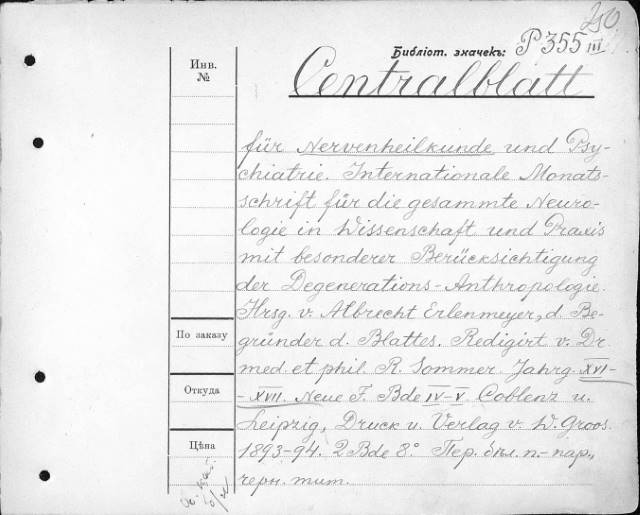 250
Библіот. значекъ: P 355 III
Centralblatt
Инв.
№
für Nervenheilkunde und Psy-
chiatrie. Internationale Monats-
schrift für die gesammte Neuro-
logie in Wissenschaft und Praxis
mit besonderer Berücksichtigung
der Degenerations-Anthropologie.
Hrsg. v. Albrecht Erlenmeyer, d. Be-
gründer d. Blattes. Redigirt v. Dr.
med. et phil. R. Sommer. Jahrg. XVI-
-XVII. Neue F. Bde IV-V. Coblenz u.
Leipzig, Druck u. Verlag v. W. Groos.
1893-94. 2 Bde 8°. Пер. бѣл. п.-пар.,
черн. тит.
По заказу
Откуда
Цѣна